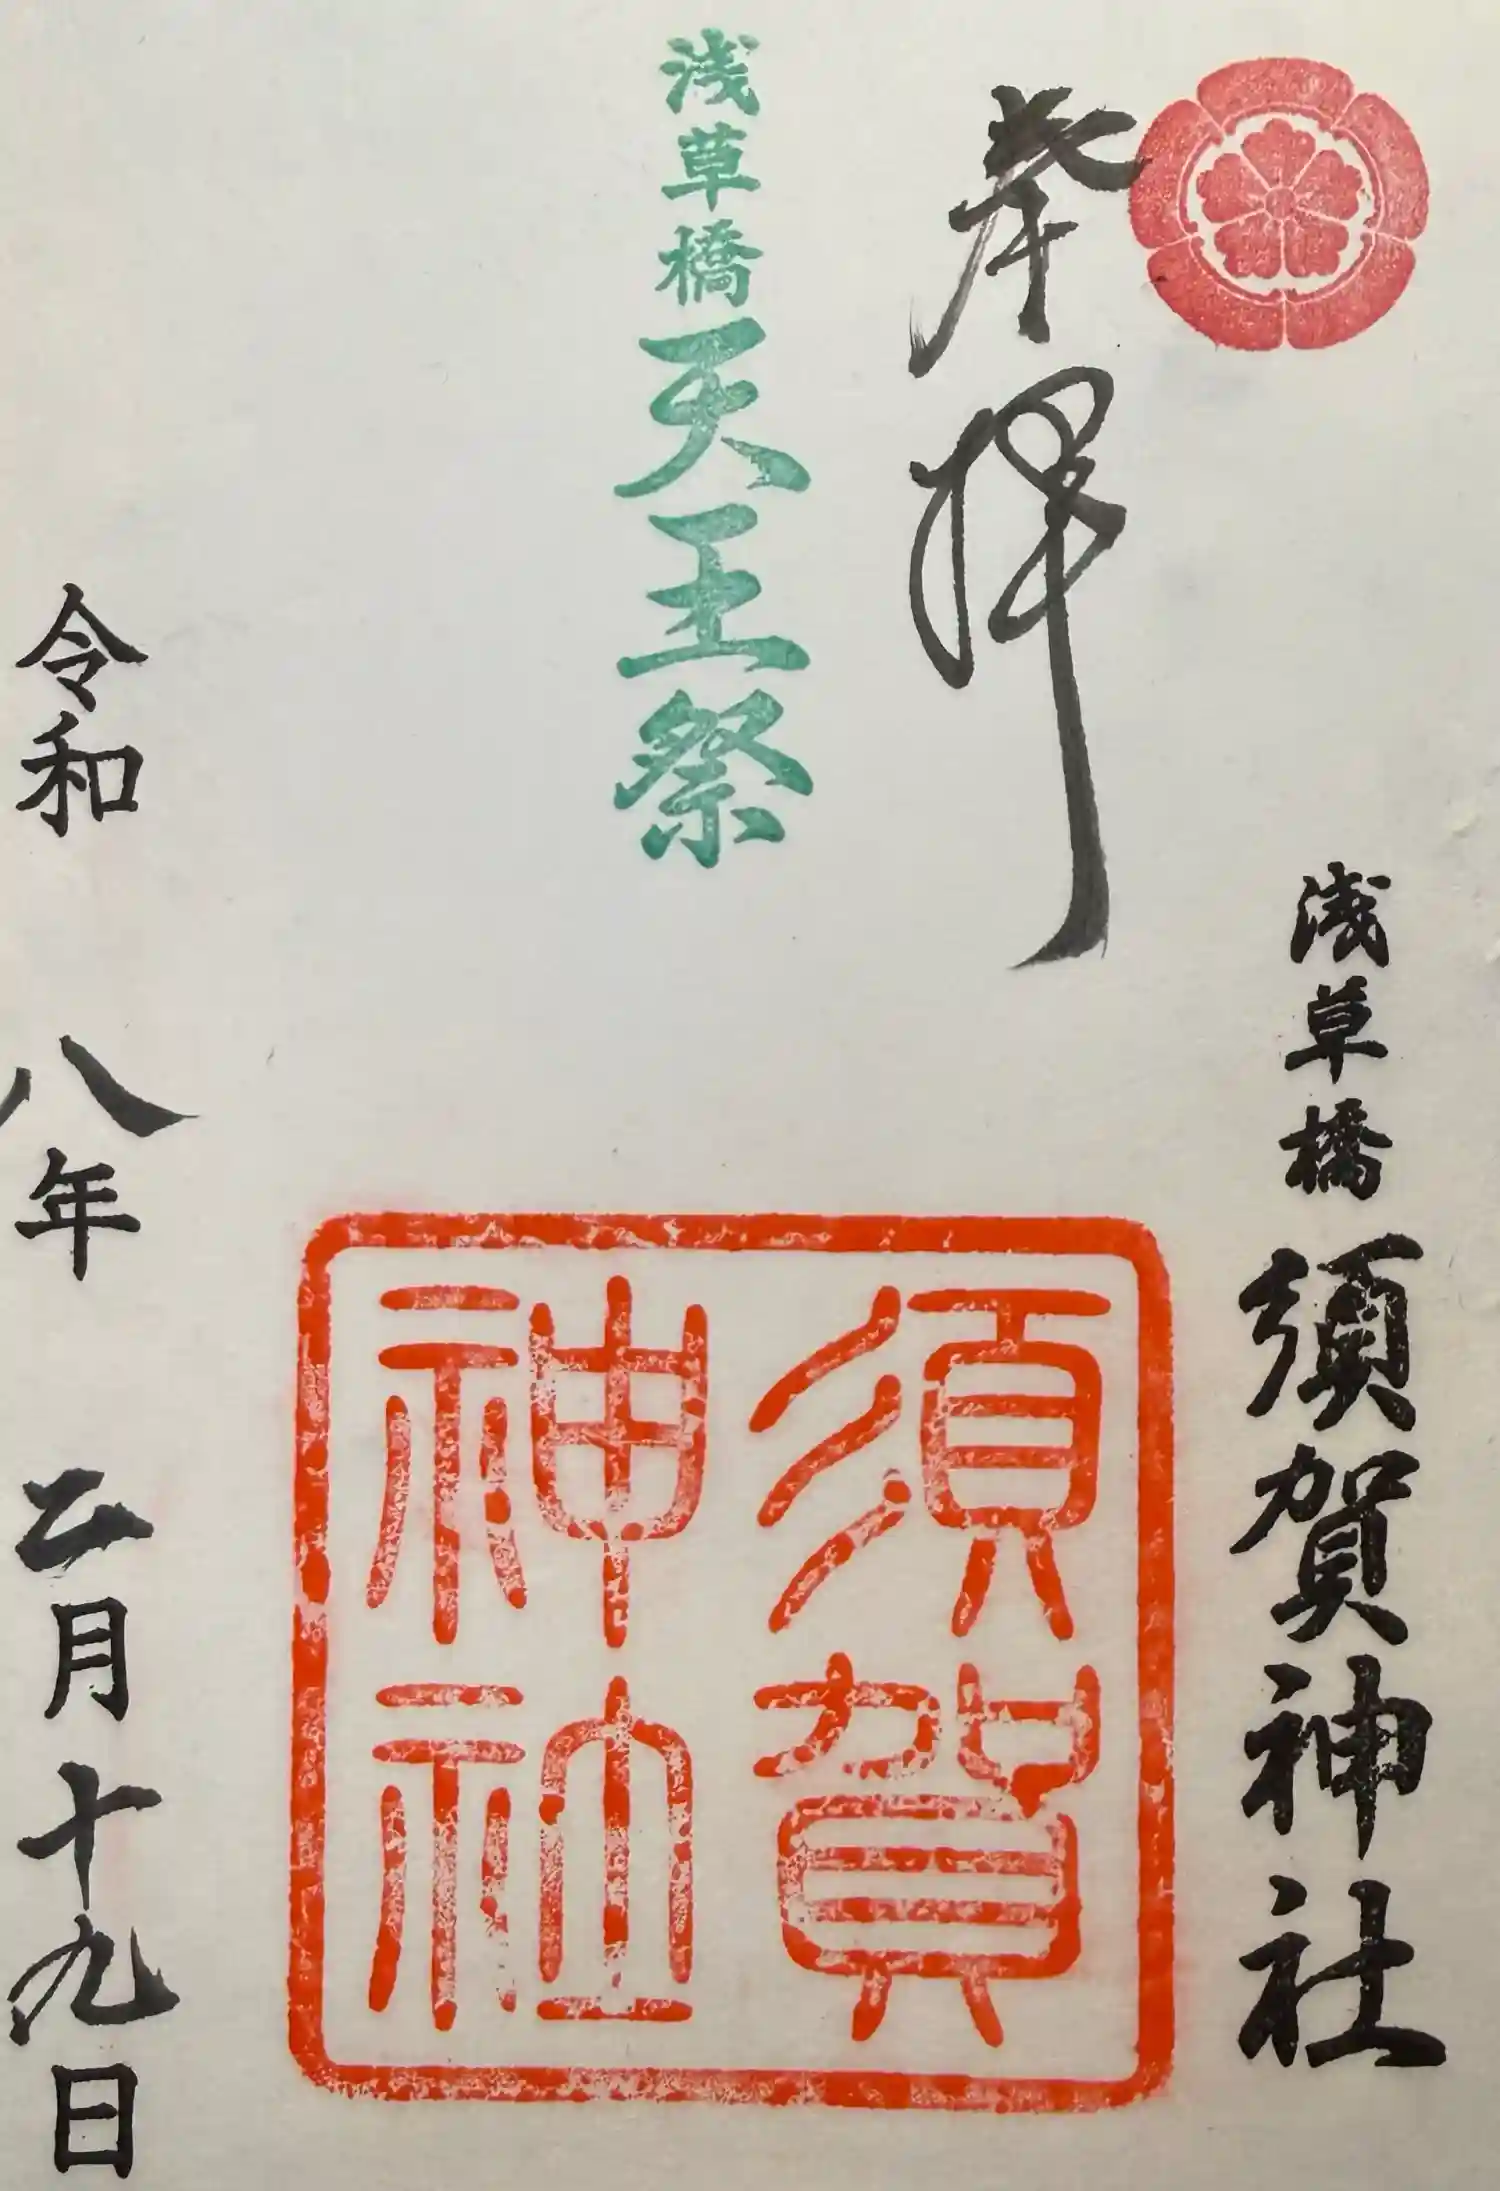 奉拝
浅草橋須賀神社
浅草橋天王祭
須賀
神社
令和 八年 二月十九日